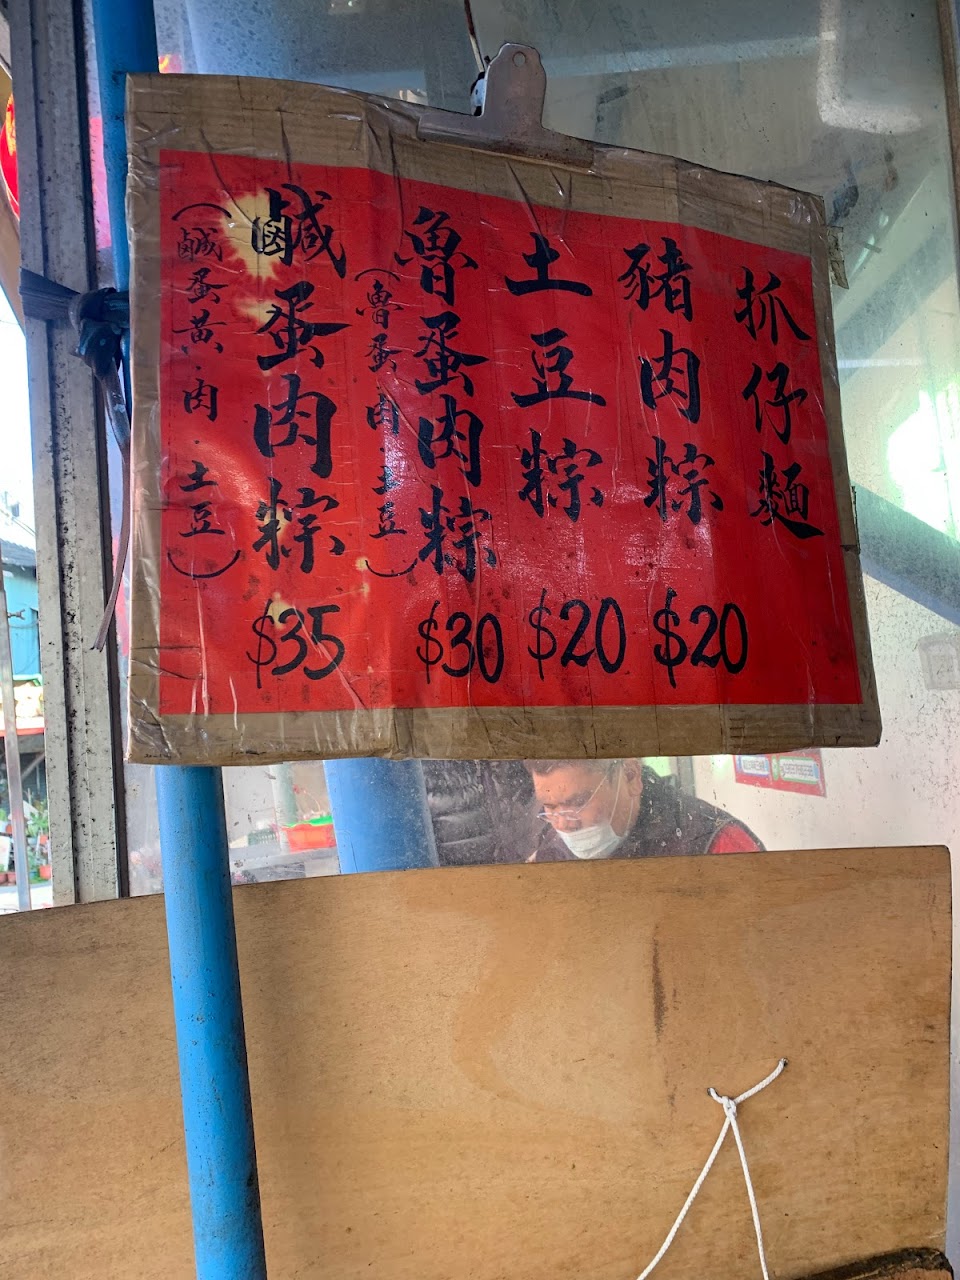 抓仔麵
豬肉粽 $20
土豆粽 $20
魯蛋肉粽 $30
(魯蛋.肉.土豆)
鹹蛋肉粽 $35
(鹹蛋黃.肉.土豆)